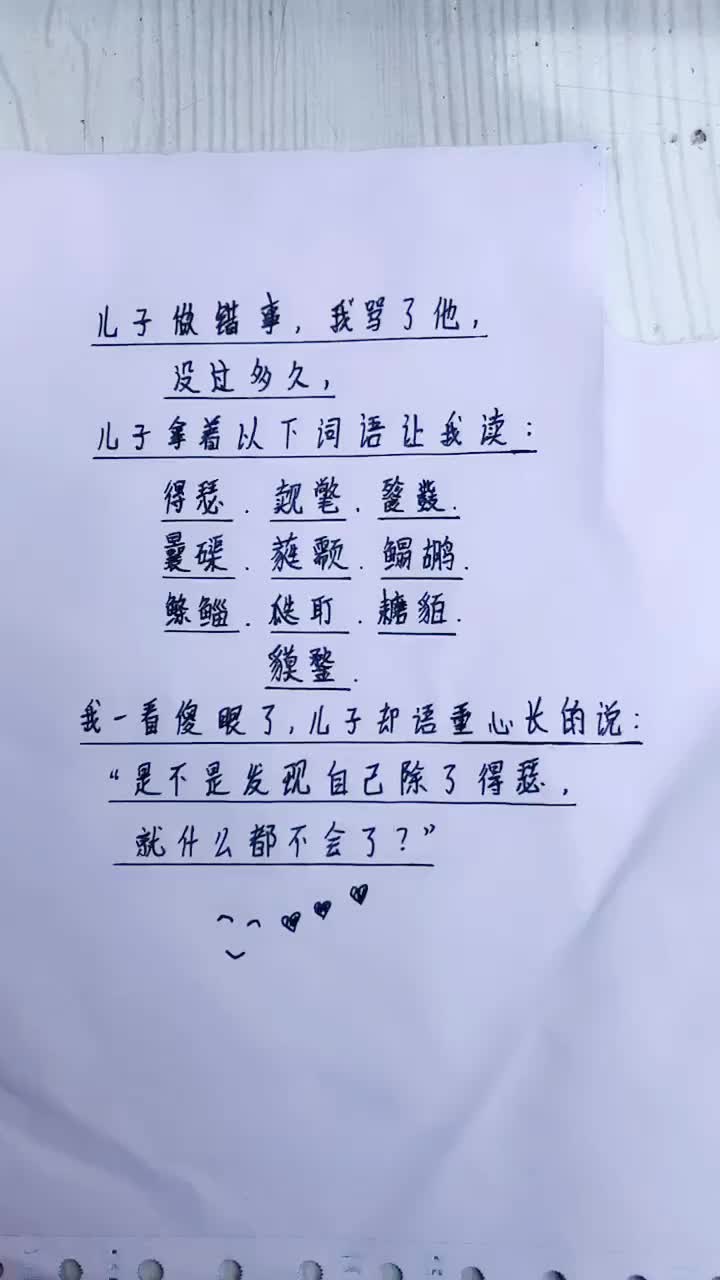 儿子做错事，我骂了他，
没过多久，
儿子拿着以下词语让我读：
得瑟．觊氅．
磲．蕤颥．鳎鹕．
鲦鲻．耵．耱貊．
貘鍪．
我一看傻眼了，儿子却语重心长的说：
“是不是发现自己除了得瑟，
就什么都不会了？”